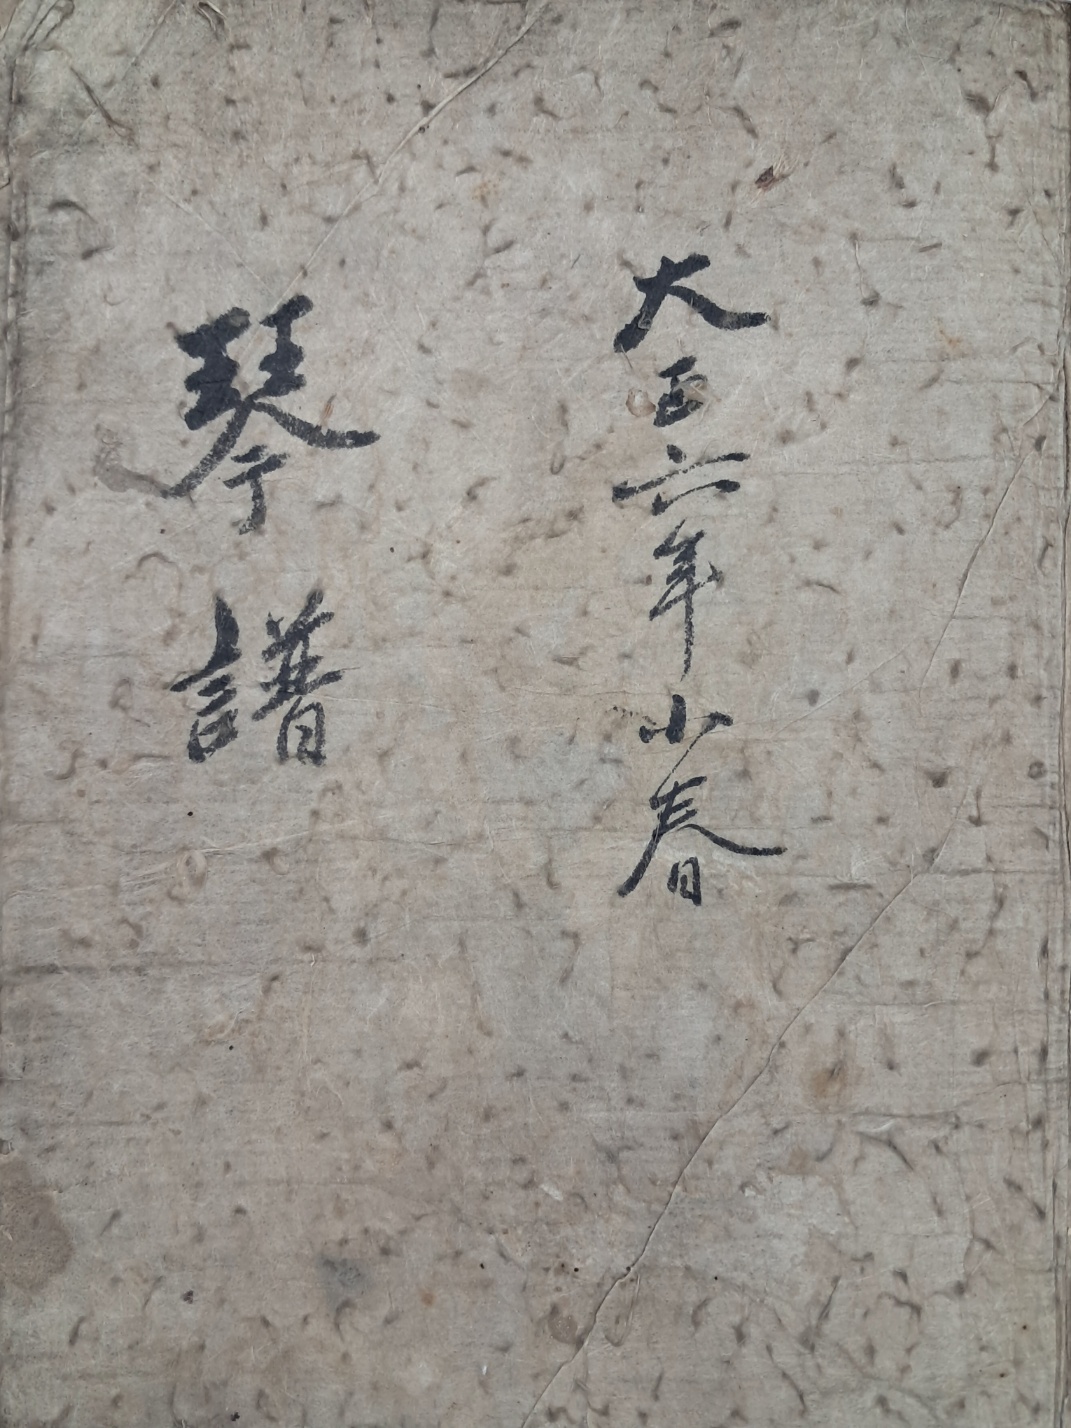 大正六年小春
琴譜